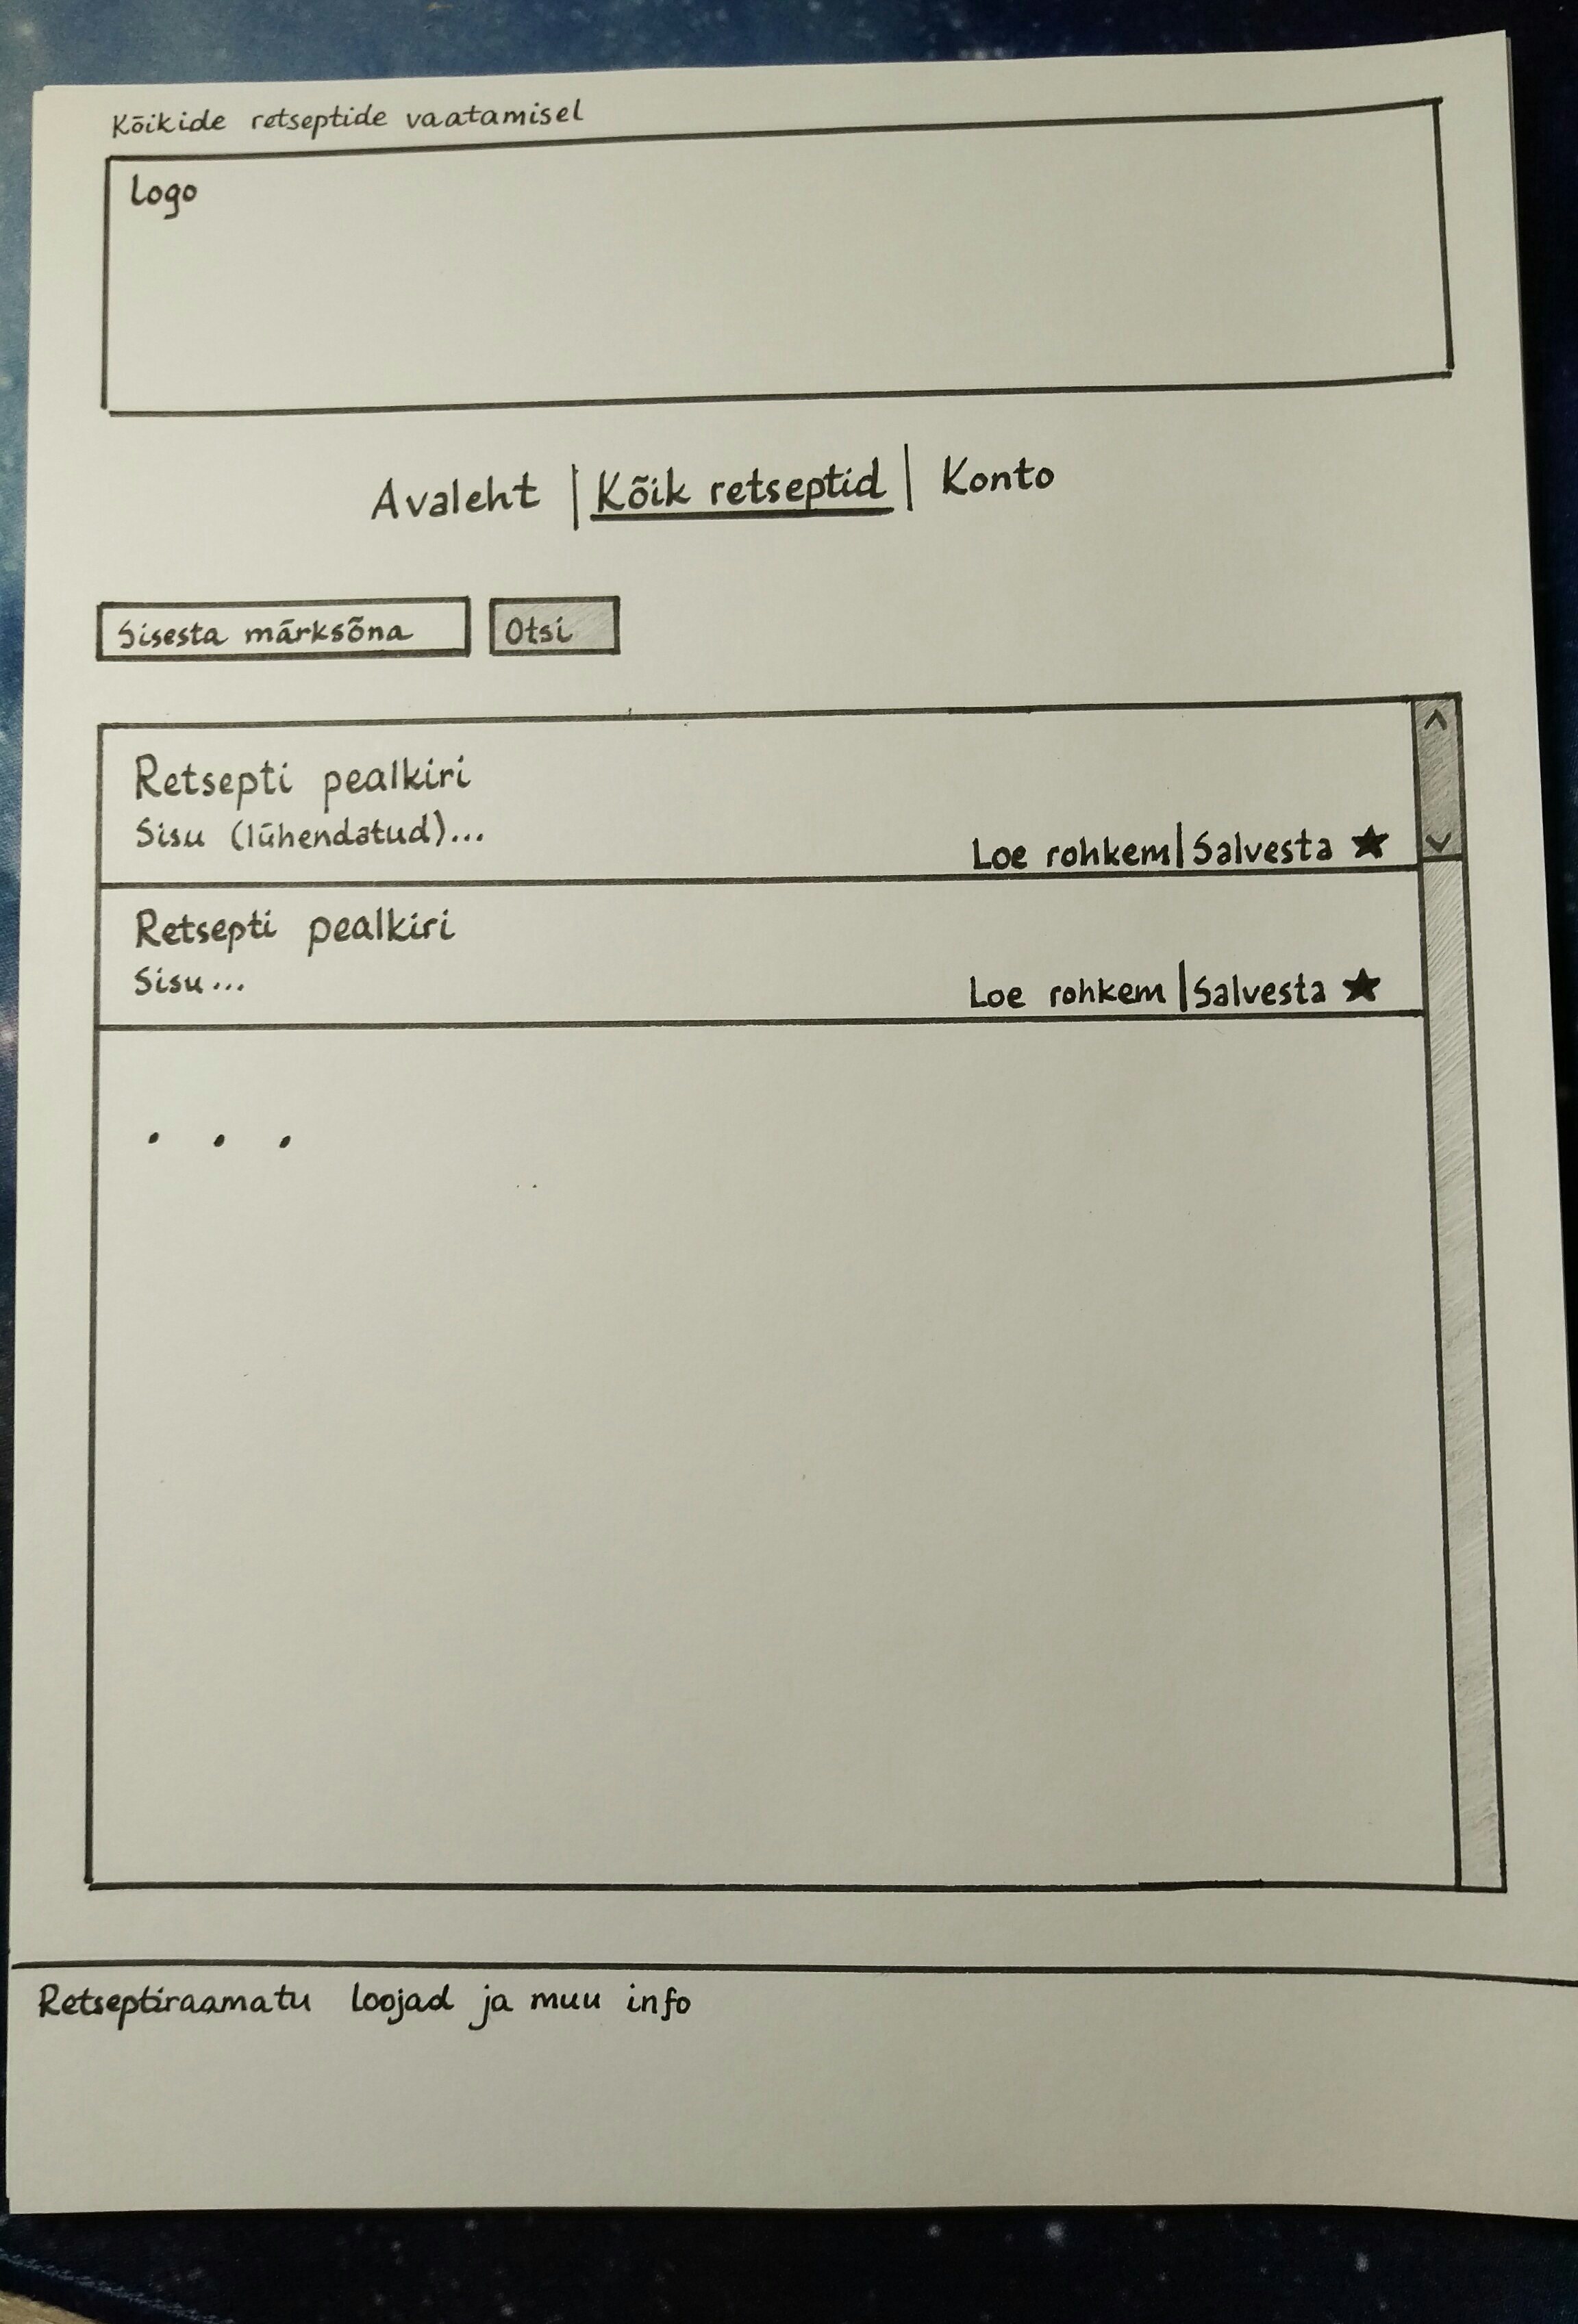 Kõikide retseptide vaatamisel
Logo
Avaleht | Kõik retseptid | Konto
Sisesta märksõna Otsi
Retsepti pealkiri
Sisu (lühendatud)...
Loe rohkem | Salvesta ★
Retsepti pealkiri
Sisu...
Loe rohkem | Salvesta ★
. . .
Retseptiraamatu loojad ja muu info